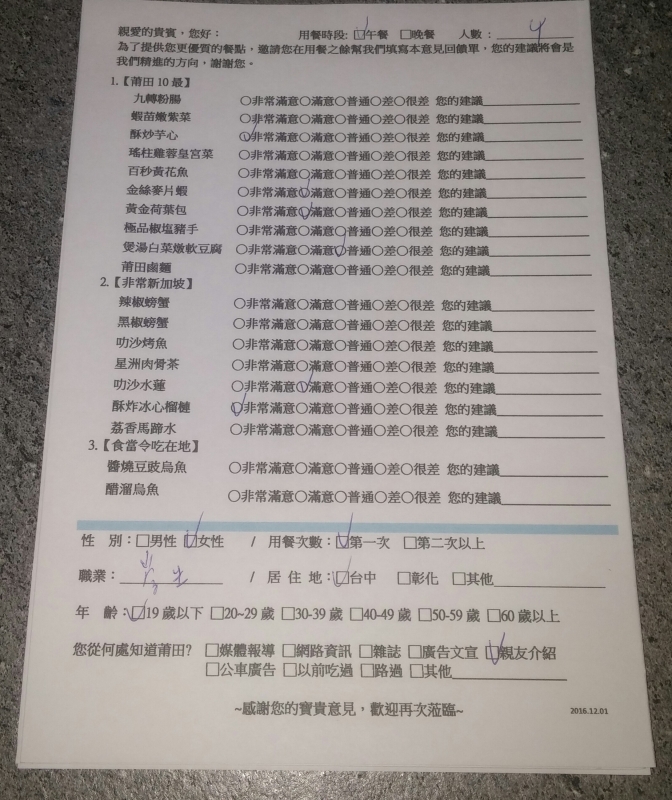 親愛的貴賓，您好： 用餐時段:☑午餐 □晚餐 人數： 4
為了提供您更優質的餐點，邀請您在用餐之餘幫我們填寫本意見回饋單，您的建議將會是
我們精進的方向，謝謝您。
1.【莆田10最】
九轉粉腸 ○非常滿意○滿意○普通○差○很差 您的建議
蝦苗嫩紫菜 ○非常滿意○滿意○普通○差○很差 您的建議
酥炒芋心 ○非常滿意○滿意○普通○差○很差 您的建議
瑤柱雞蓉皇宮菜 ○非常滿意○滿意○普通○差○很差 您的建議
百秒黃花魚 ○非常滿意○滿意○普通○差○很差 您的建議
金絲麥片蝦 ○非常滿意○滿意○普通○差○很差 您的建議
黃金荷葉包 ○非常滿意○滿意○普通○差○很差 您的建議
極品椒塩豬手 ○非常滿意○滿意○普通○差○很差 您的建議
煲湯白菜燉軟豆腐 ○非常滿意○滿意○普通○差○很差 您的建議
莆田鹵麵 ○非常滿意○滿意○普通○差○很差 您的建議
2.【非常新加坡】
辣椒螃蟹 ○非常滿意○滿意○普通○差○很差 您的建議
黑椒螃蟹 ○非常滿意○滿意○普通○差○很差 您的建議
叻沙烤魚 ○非常滿意○滿意○普通○差○很差 您的建議
星洲肉骨茶 ○非常滿意○滿意○普通○差○很差 您的建議
叻沙水蓮 ○非常滿意○滿意○普通○差○很差 您的建議
酥炸冰心榴槤 ○非常滿意○滿意○普通○差○很差 您的建議
荔香馬蹄水 ○非常滿意○滿意○普通○差○很差 您的建議
3.【食當令吃在地】
醬燒豆豉烏魚 ○非常滿意○滿意○普通○差○很差 您的建議
醋溜烏魚 ○非常滿意○滿意○普通○差○很差 您的建議
性 別：□男性 ☑女性 / 用餐次數：☑第一次 □第二次以上
職業： / 居住地：☑台中 □彰化 □其他
年 齡：☑19歲以下 □20~29歲 □30-39歲 □40-49歲 □50-59歲 □60歲以上
您從何處知道莆田? □媒體報導 □網路資訊 □雜誌 □廣告文宣 ☑親友介紹
□公車廣告 □以前吃過 □路過 □其他
~感謝您的寶貴意見，歡迎再次蒞臨~ 2016.12.01